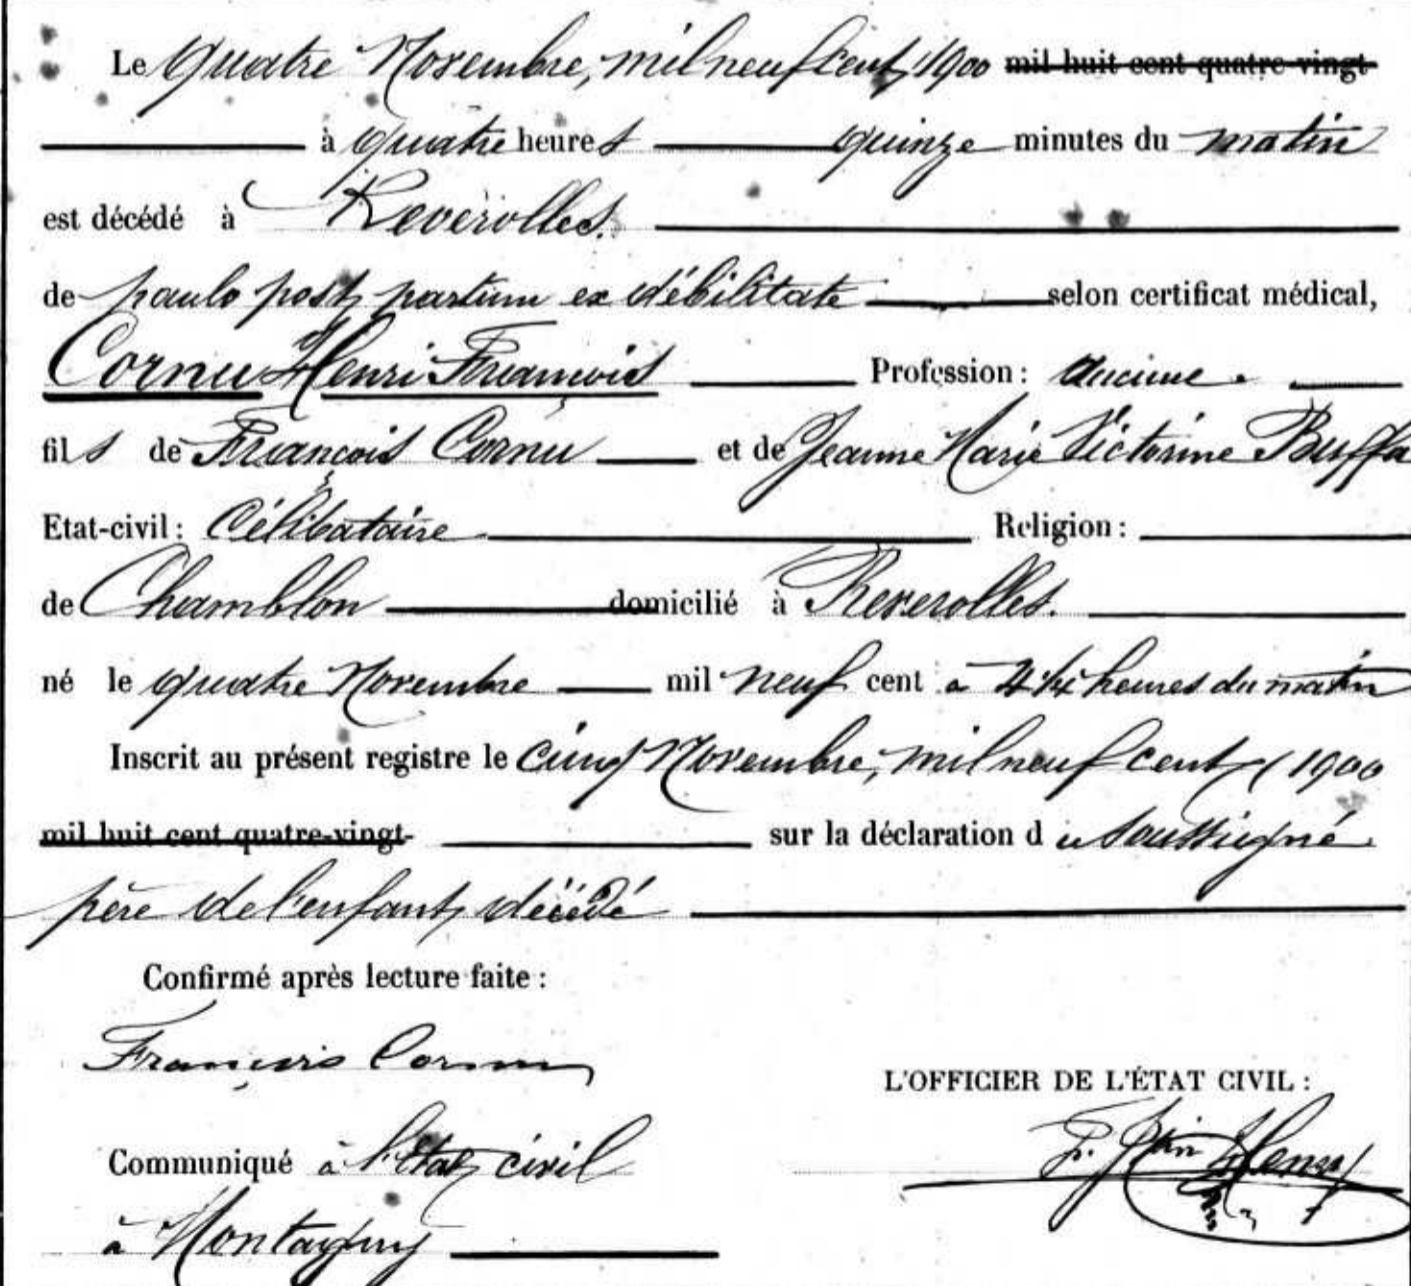 Le quatre Novembre, mil neuf cent, 1900 mil huit cent quatre-vingt
à quatre heures quinze minutes du matin
est décédé à Reverolles.
de paulo post partum ex débilitate selon certificat médical,
Cornu Henri François Profession : aucune.
fils de François Cornu et de Jeanne Marie Victorine Buffa
Etat-civil : Célibataire Religion :
de Chamblon domicilié à Reverolles.
né le quatre Novembre mil neuf cent à 4 1/4 heures du matin
Inscrit au présent registre le cinq Novembre, mil neuf cent (1900
mil huit cent quatre-vingt- sur la déclaration du soussigné
père de l'enfant décédé
Confirmé après lecture faite :
François Cornu
L'OFFICIER DE L'ÉTAT CIVIL :
Communiqué à l'état civil
à Montagny